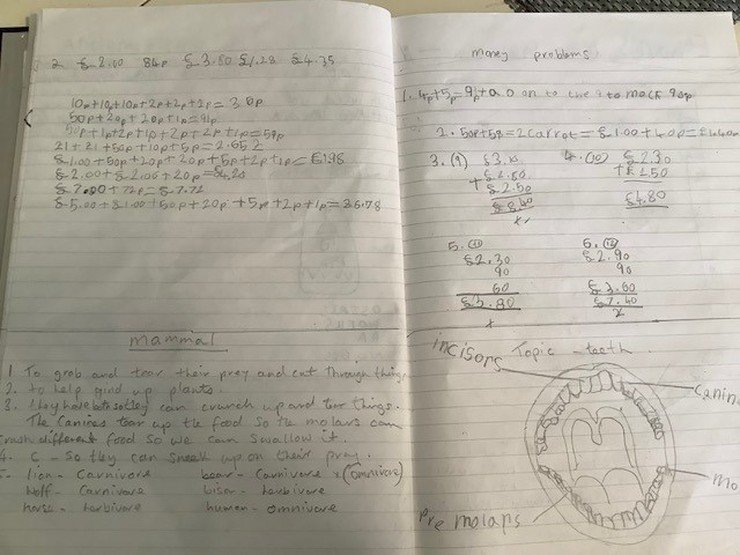 2 £2.00 84p £3.80 £1.28 £4.35
10p+10p+10p+2p+2p+1p= 3
50p+20p+20p+1p=91p
50p+1p+2p+1p+2p+2p+1p=59p
£1+£1+50p+10p+5p=2.65
£1.00+50p+20p+20p+5p+2p+1p=£1.98
£2.00+£2.00+20p=£4.20
£7.00+72p=£7.72
£5.00+£1.00+50p+20p+5p+2p+1p=£6.78
mammal
1 To grab and tear their prey and cut through things
2. to help gind up plants.
3. they have both so they can crunch up and tear things.
The Canines tear up the food so the molars can
crush different food so we can swallow it.
4. C - So they can sneek up on their prey.
5- lion - Carnivore bear - Carnivore x (omnivore)
Wolf - Carnivore bison - herbivore
horse - herbivore human - omnivore
money problems
1. 4p+5p=9p+a 0 on to the 9 to mack 90p
2. 50p+50=2 Carrot=£1.00+40p=
3. (9) 4. (10) £2.30
+£2.50 +£2.50
£2.50 £4.80
£8.40
x
5. (11) 6. (12)
£2.30 £2.90
90 90
60 £3.60
£3.80 £7.40
x x
incisors Topic - teeth
Canin
mo
Pre molars